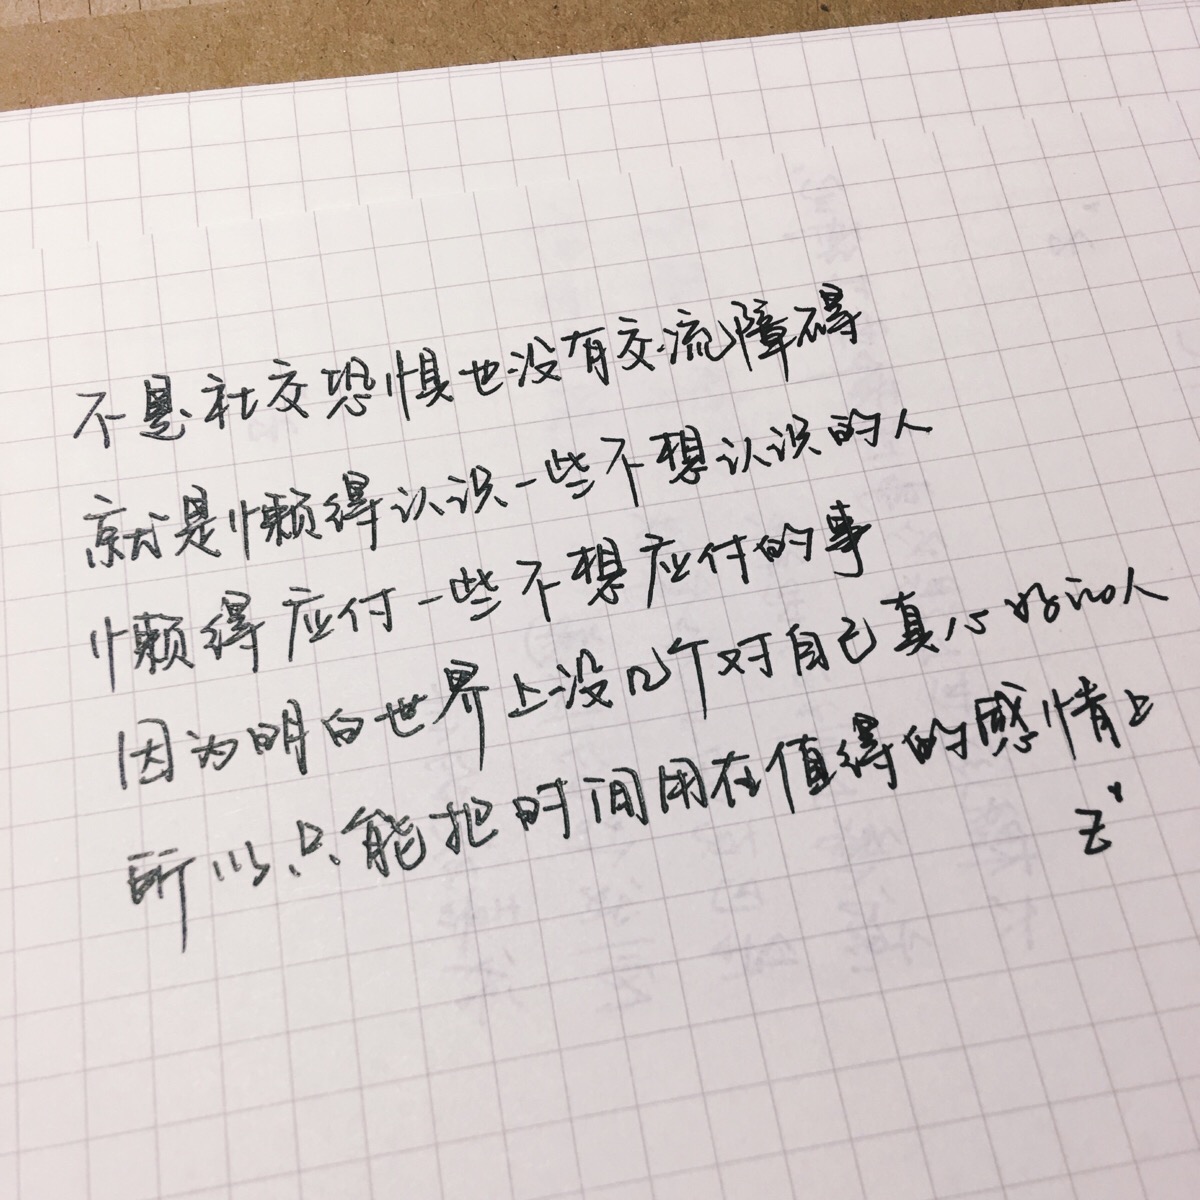 不是社交恐惧也没有交流障碍
就是懒得认识一些不想认识的人
懒得应付一些不想应付的事
因为明白世界上没几个对自己真心好的人
所以只能把时间用在值得的感情上
Z